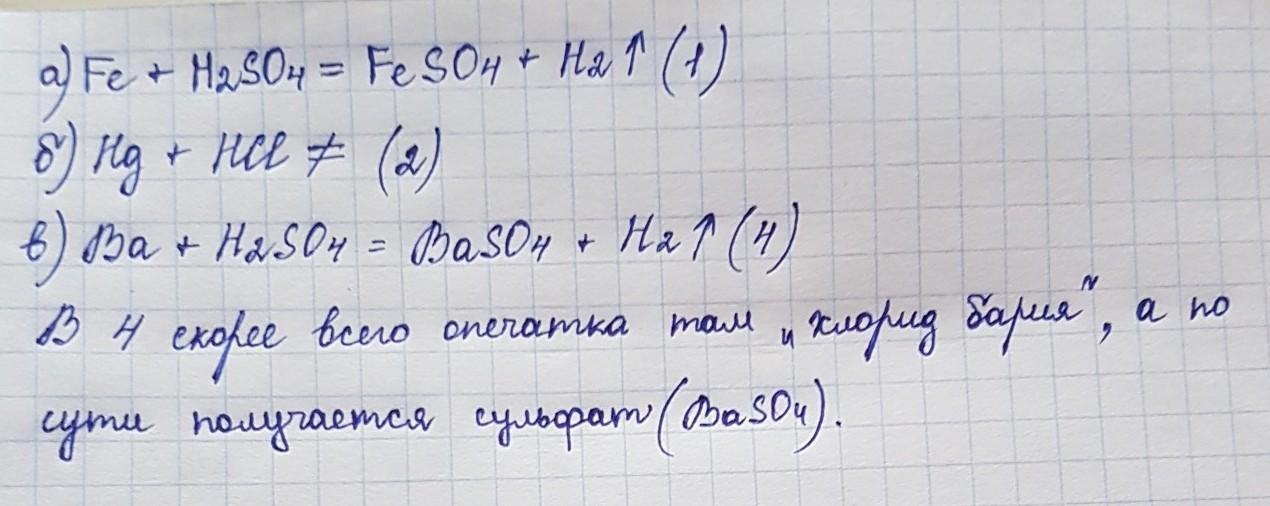 а) Fe + H2SO4 = FeSO4 + H2↑ (1)
б) Hg + HCl ≠ (2)
в) Ba + H2SO4 = BaSO4 + H2↑ (4)
В 4 скорее всего опечатка там „хлорид бария", а по
сути получается сульфат (BaSO4).